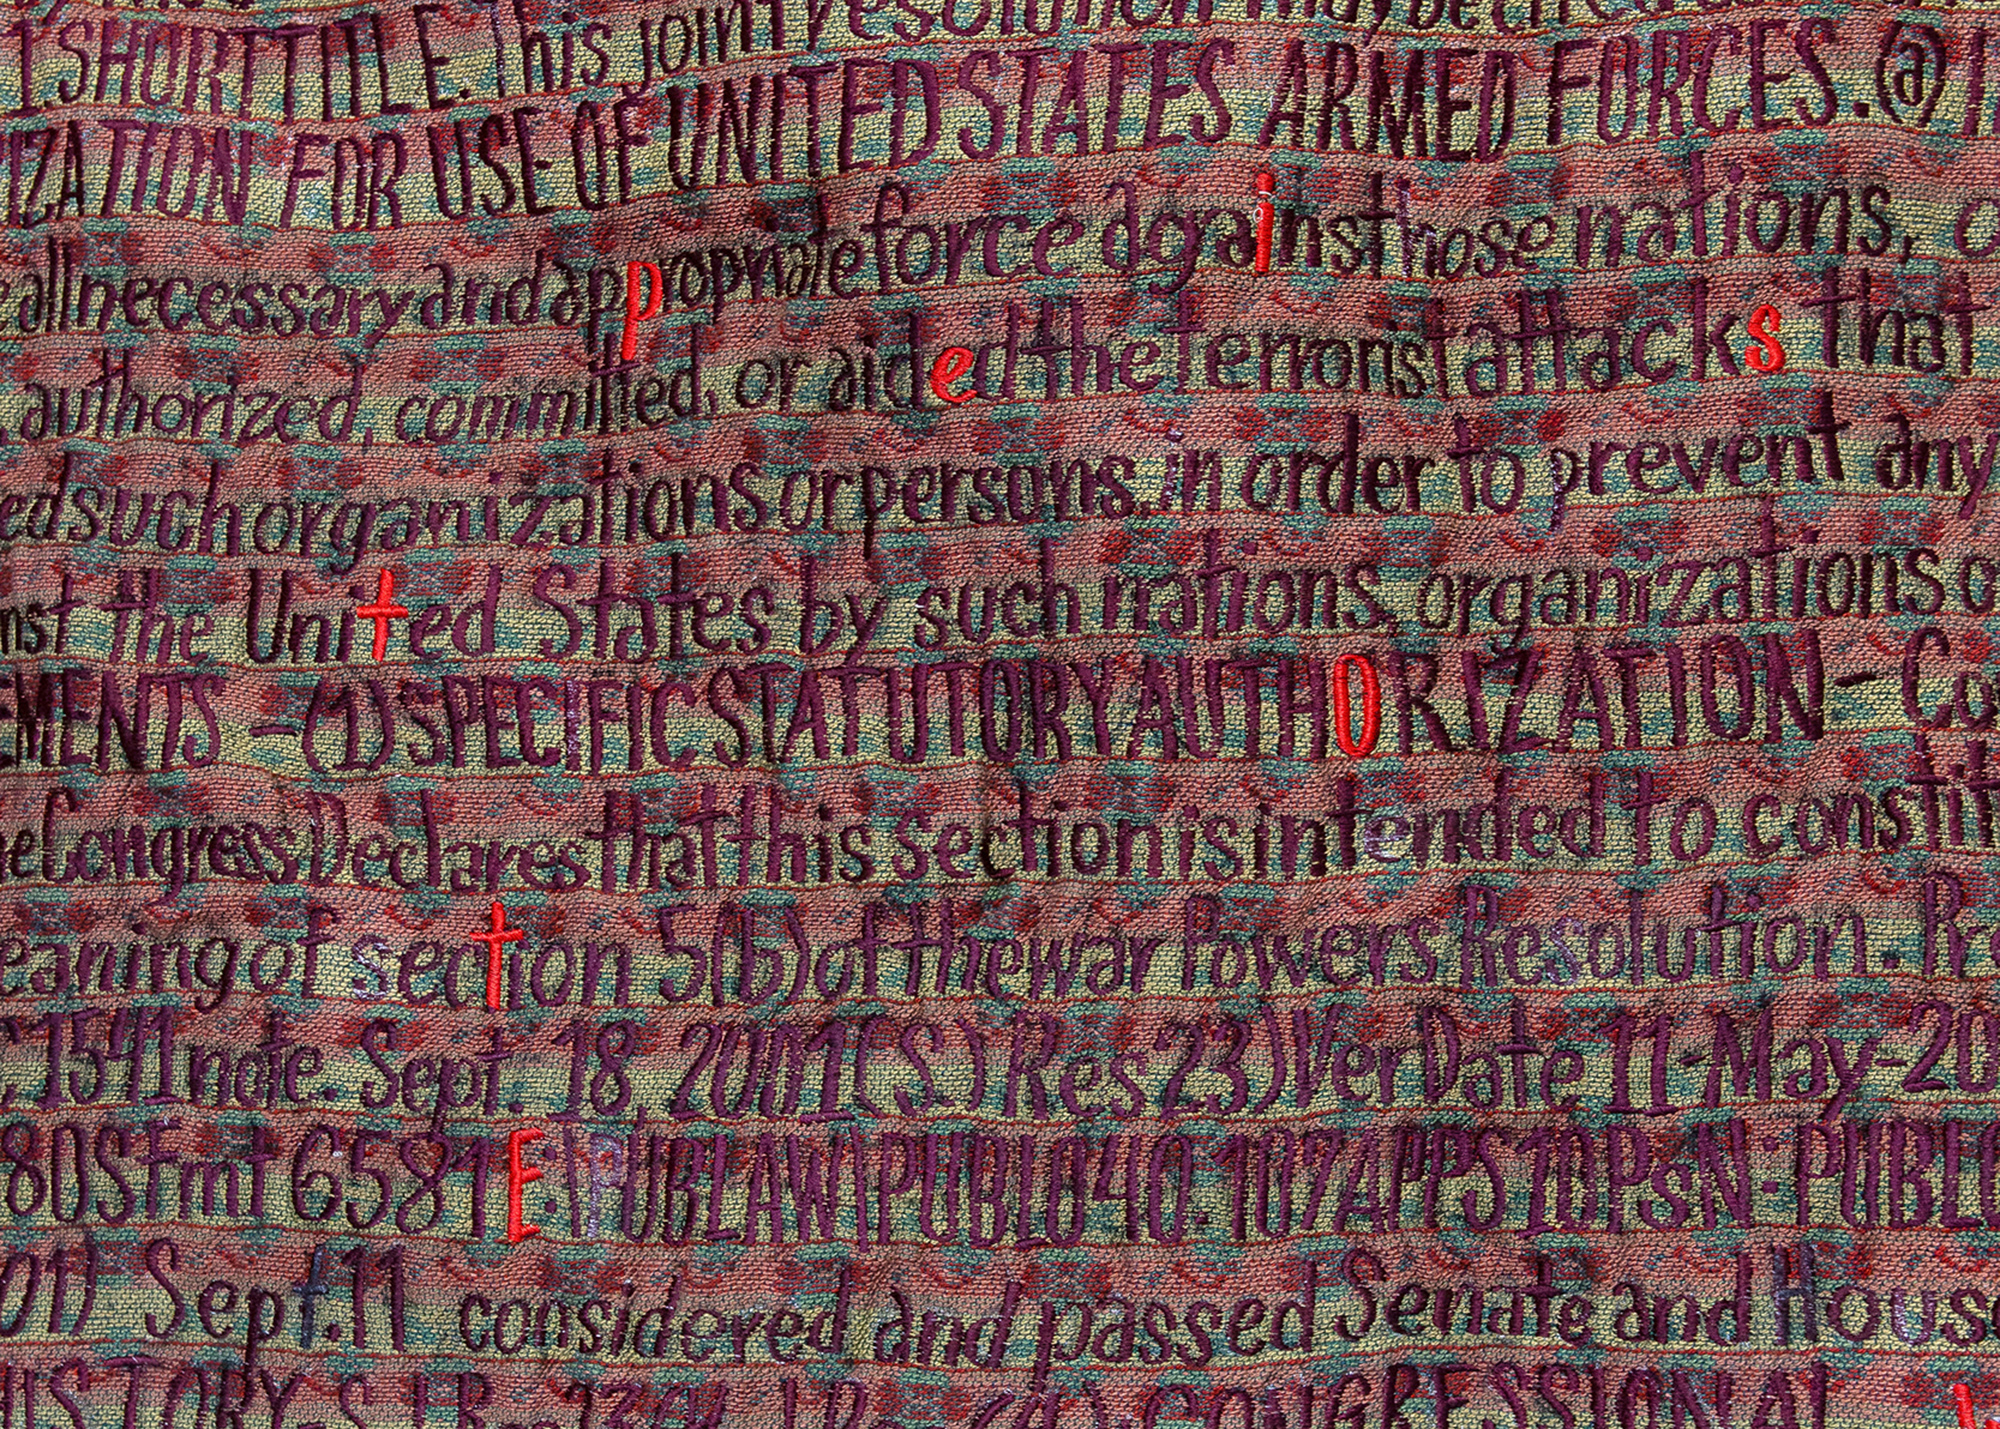 1. SHORT TITLE. This joint resolution may be cited
IZATION FOR USE OF UNITED STATES ARMED FORCES. @ I
all necessary and appropriate force against those nations, o
authorized, committed, or aided the Terrorist attacks that
ed such organizations or persons, in order to prevent any
nst the United States by such nations, organizations o
EMENTS -(1) SPECIFIC STATUTORY AUTHORIZATION - Co
he Congress Declares that this section is intended to constit
eaning of section 5(b) of the war Powers Resolution. Ra
C. 1541 note. Sept. 18, 2001 (S.) Res 23) VerDate 11-May-20
80 SFmt 6581 E:\PUBLAW\PUBL040.107 APPS10 PsN: PUBL0
01) Sept. 11 considered and passed Senate and House
HISTORY-S.J.R CONGRESSIONAL